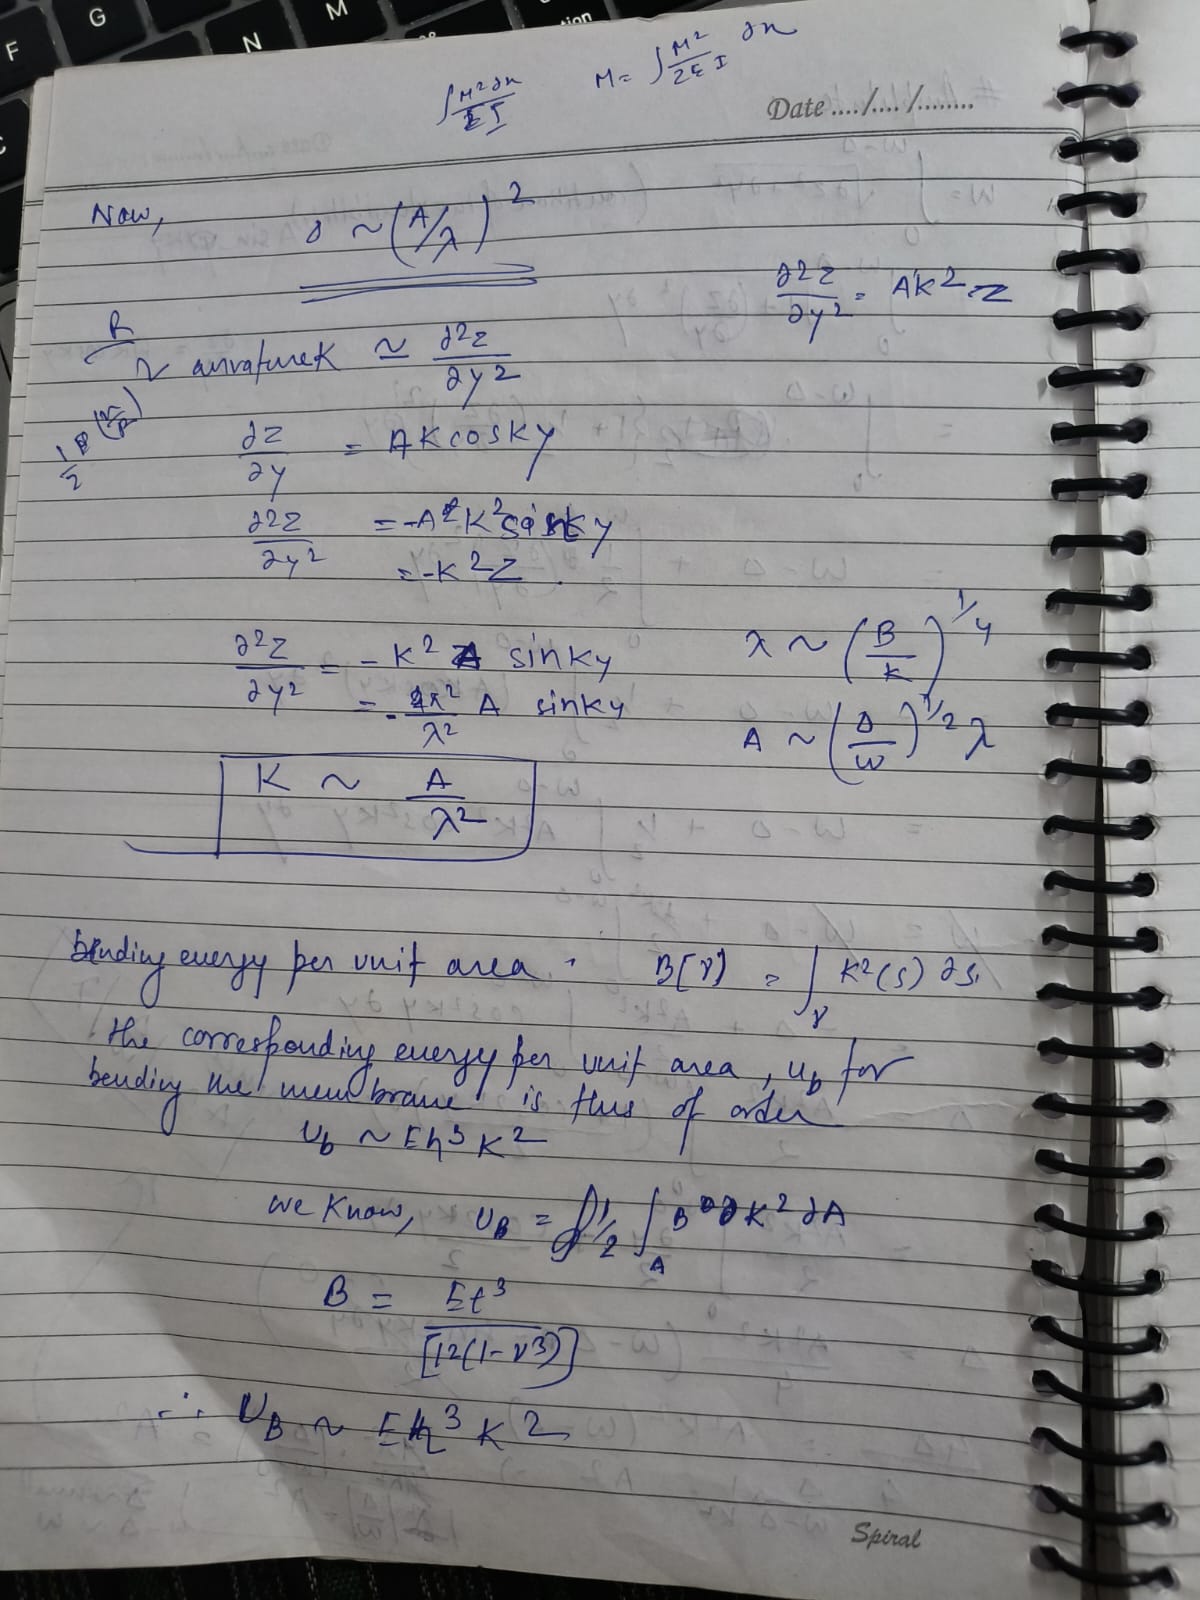 F G N
∫ M²∂x / EI    M = ∫ M² / 2EI ∂x
Date ..../..../........
Now, γ ~ (A/λ)²
∂²z/∂y² = AK² z
R
~ curvature K ≃ ∂²z/∂y²
∂z/∂y = AK cosKy
∂²z/∂y² = -A K² sinKy
= -K² z
∂²z/∂y² = -K² A sinKy    λ ~ (B/K)^1/4
= -4π²/λ² A sinKy    A ~ (Δ/W)^1/2 λ
K ~ A/λ²
bending energy per unit area : B[γ] = ∫γ K²(s) ∂s
the corresponding energy per unit area, Ub for
bending the membrane is thus of order
Ub ~ Eh³K²
we know, UB = 1/2 ∫A B K² ∂A
B = Et³ / [12(1-ν³)]
∴ UB ~ Eh³ K²
Spiral